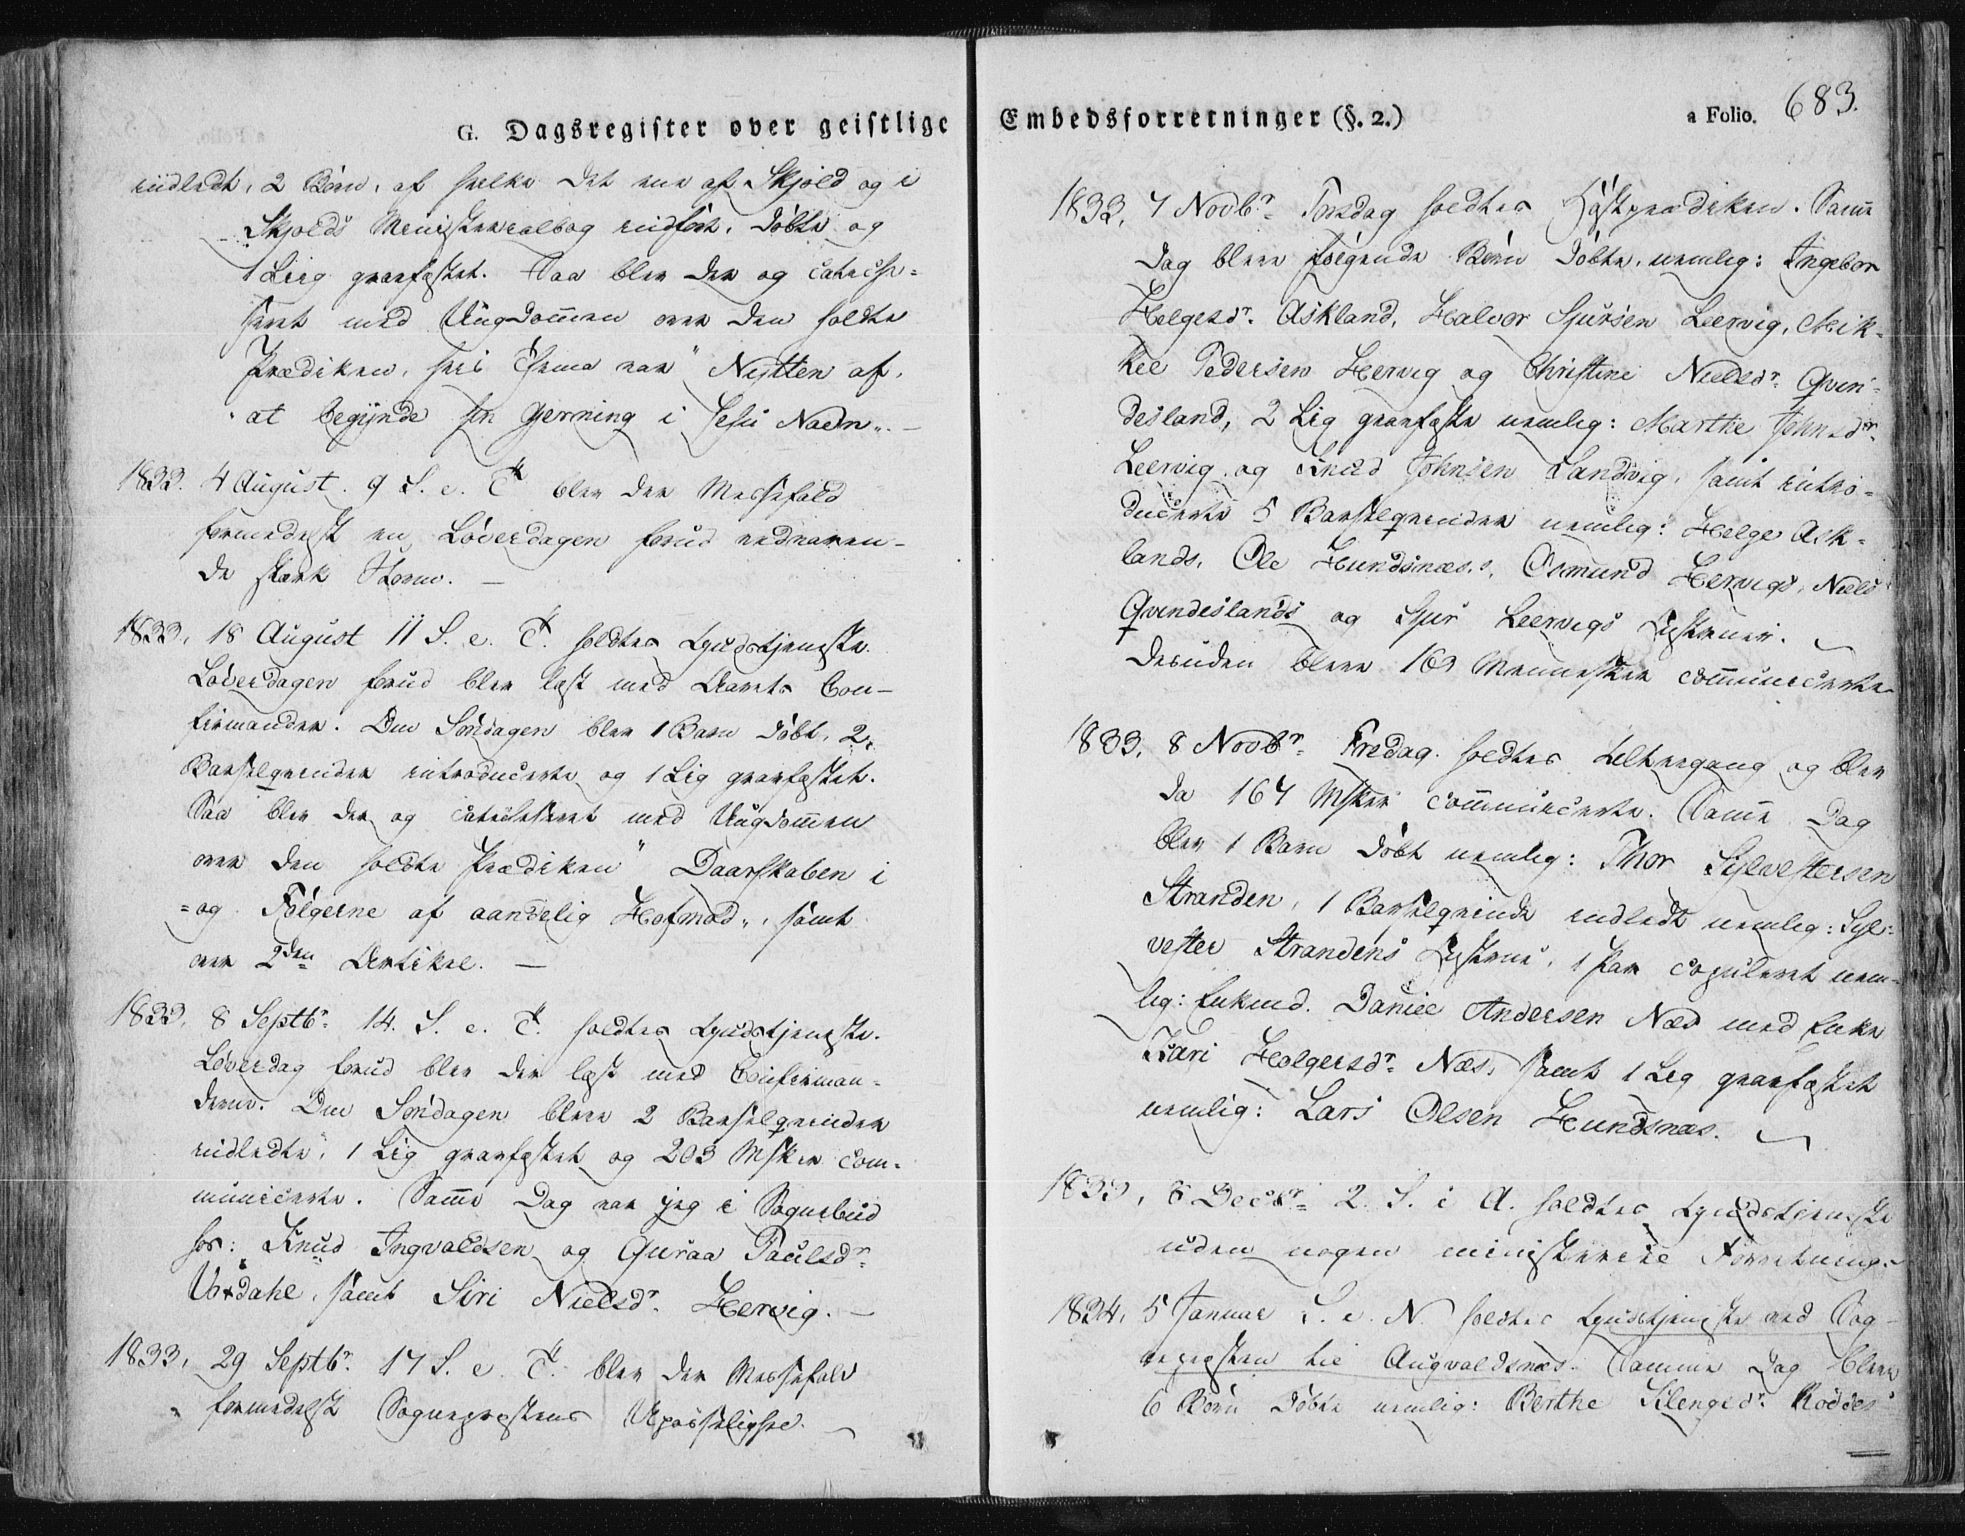 G. Dagsregister over geistlige
indledt, 2 Børn, af hvilke det ene af Skjold og i
Skjolds Ministerialbog indført, døbte og
1 Liig græsfæstet. Saa blev der og catechi-
seret med Ungdommen over den holdte
Prædiken, hvis Thema var "Nytten af,
at begynde sin Gjerning i Jesu Navn". —
1833. 4 August. 9 S. e. T. blev der Messefald
formedelst en Løverdagen forud vedvaren-
de stærk Storm. —
1833, 18 August 11 S. e. T. holdtes Gudstjeneste.
Løverdagen forud blev læst med Aarets Con-
firmander. Om Søndagen blev 1 Barn døbt, 2
Barselqvinder introducerte og 1 Lig græsfæstet.
Saa blev der og catechiseret med Ungdommen
over den holdte Prædiken "Daarskaben i
=og Følgerne af aandelig Hofmod", samt
over 2den Artikel. —
1833, 8 Septbr. 14. S. e. T. holdtes Gudstjeneste.
Løverdag forud blev der læst med Confirman-
derne. Om Søndagen bleve 2 Barselqvinder
indledte, 1 Lig græsfæstet og 203 Msker com-
municerte. Samme Dag var jeg i Sognebud
hos: Knud Ingvaldsen og Guraa Paulsdr.
Vasdahl, samt Siri Nielsdr. Hervig. —
1833, 29 Septbr. 17 S. e. T. blev der Messefald
formedelst Sognepræstens Upasselighed.
Embedsforretninger (§. 2.)
a Folio. 683.
1833, 7 Novbr. Torsdag holdtes Høstprædiken. Samme
Dag bleve følgende Børn døbte, nemlig: Ingebor
Helgesdr. Askland, Halvor Sjursen Leervig, Mik-
kel Pedersen Hervig og Christine Nielsdr. Qvin-
desland, 2 Lig græsfæste nemlig: Marthe Johnsdr.
Leervig og Knud Johnsen Sandvig, samt intro-
ducerte 5 Barselqvinder nemlig: Helge Ask-
lands, Ole Hundsnæs.s, Osmund Hervigs, Niels
Qvindeslands og Sjur Leervigs Hustruer.
Desuden bleve 169 Mennesker communicerte
1833, 8 Novbr. Fredag holdtes Altergang og blev
da 167 Msker communicerte. Samme Dag
blev 1 Barn døbt nemlig: Thor Sylvestersen
Stranden, 1 Barselqvinde indledt nemlig: Syl-
vester Strandens Hustrue, 1 Par copuleret nem-
lig: Enkemd. Daniel Andersen Næs med Enke
Kari Holgersdr. Næs, samt 1 Lig græsfæstet
nemlig: Lars Olsen Hundsnæs.
1833, 8 Decbr. 2. S. i A. holdtes Gudstjeneste
uden nogen ministeriel Forretning.
1834, 5 Januar S. e. N. holdtes Gudstjeneste ved Sog-
nepræsten til Augvaldsnæs. Samme Dag bleve
6 Børn døbte nemlig: Berthe Rødde